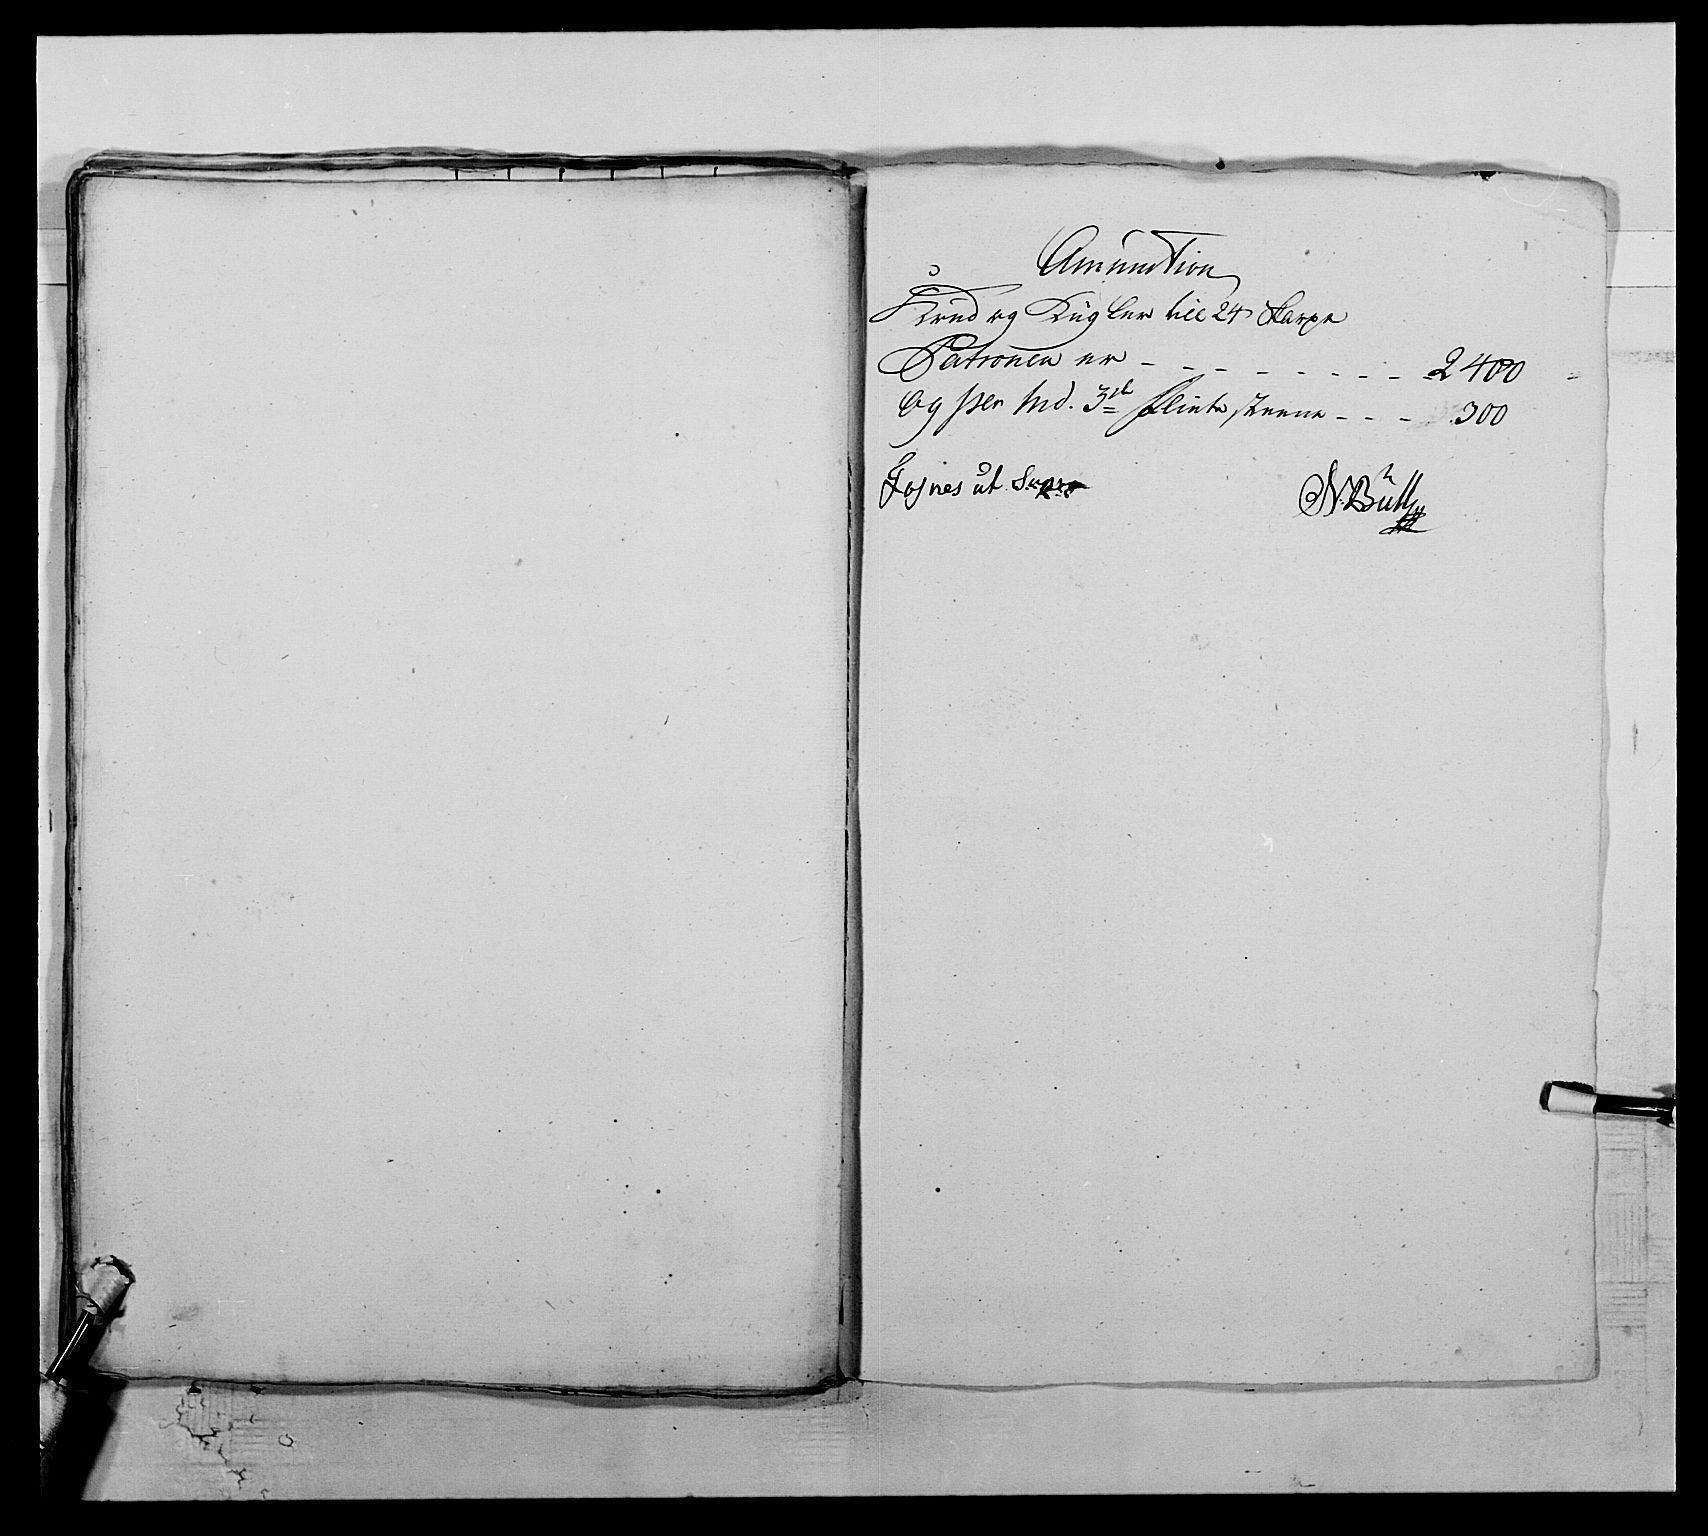 Amunition
Krud og Kugler till 24 skarpe
Patroner er - - - - - - - - - 2400
og per Md. 3 st Flintesteene - - - 300
Fosnes ut Supra
N: Bull